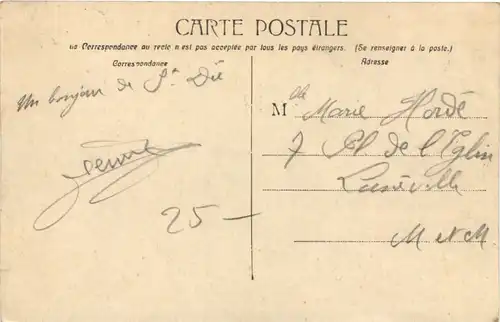 CARTE POSTALE
La Correspondance au recto n'est pas acceptée par tous les pays étrangers. (Se renseigner à la poste.)
Correspondance
Adresse
Un bonjour de St Dié
25 —
Mlle Marie Hordé
7 Pl de l'Eglise
Lunéville
M et M.